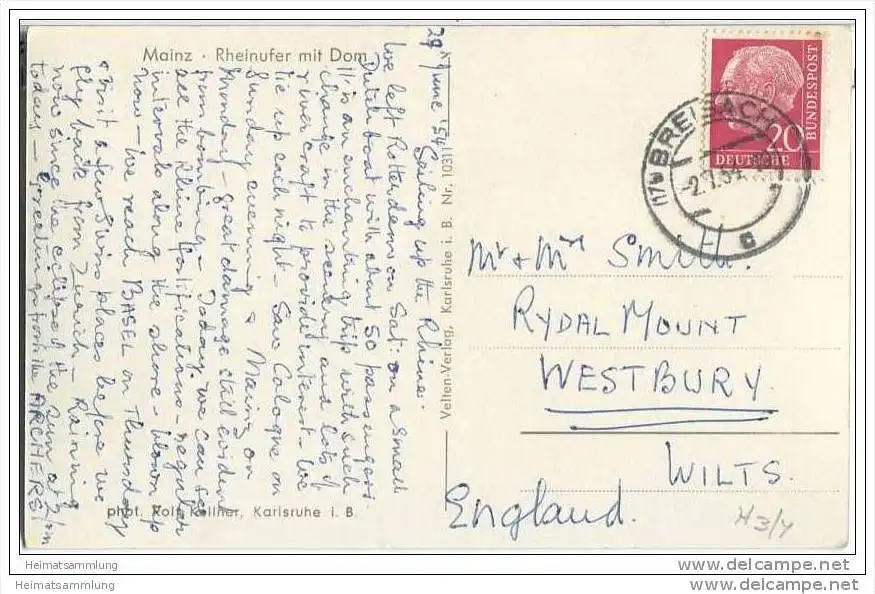 Mainz · Rheinufer mit Dom
29th June '54
Sailing up the Rhine.
We left Rotterdam on Sat: on a small
Dutch boat with about 50 passengers.
It is an enchanting trip with such
change in the scenery and lots of
river craft to provide interest - We
tie up each night - Saw Cologne on
Sunday evening & Mainz on
Monday - great damage still evident
from bombing - Today we can see
see the Rhine fortifications - regular
intervals along the shore - blown up
now - We reach BASEL on Thursday
& visit a few Swiss places before we
fly back from Zurich - Raining
now since the eclipse of the sun at 2 pm
today - Greetings from the ARCHERS!
phot. Rolf Kellner, Karlsruhe i. B.
Velten-Verlag, Karlsruhe i. B. Nr. 10311
DEUTSCHE
BUNDESPOST
20
(17b) BREISACH
-2.7.54
c
Mr & Mrs Smith.
RYDAL MOUNT
WESTBURY.
WILTS.
England.
H3/4
www.delcampe.net
Heimatsammlung
www.delcampe.net
Heimatsammlung